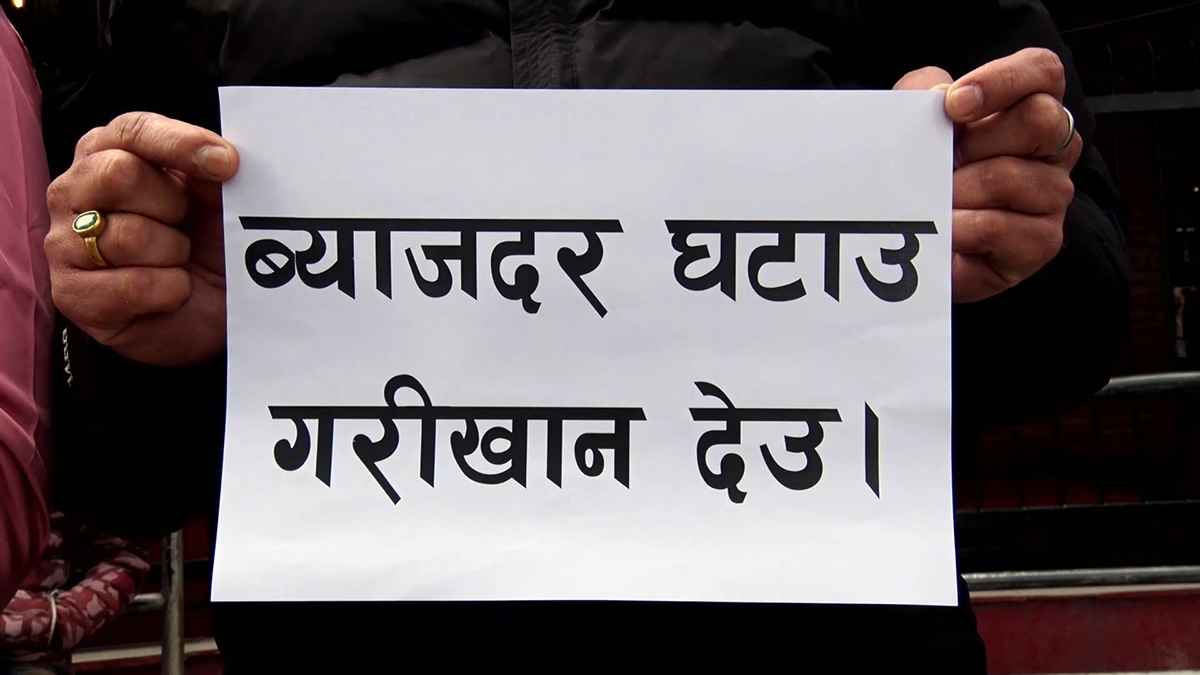 ब्याजदर घटाउ
गरीखान देउ।